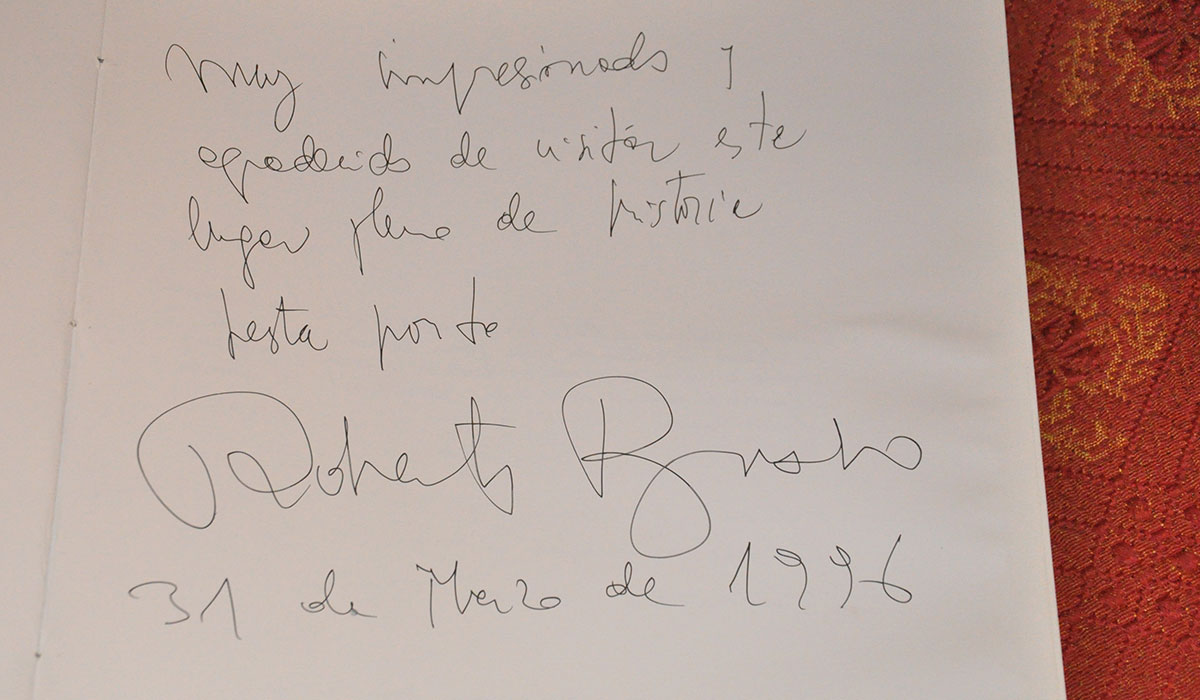 muy impresionado y
agradecido de visitar este
lugar pleno de historia
hasta pronto
Roberto
31 de Marzo de 1996